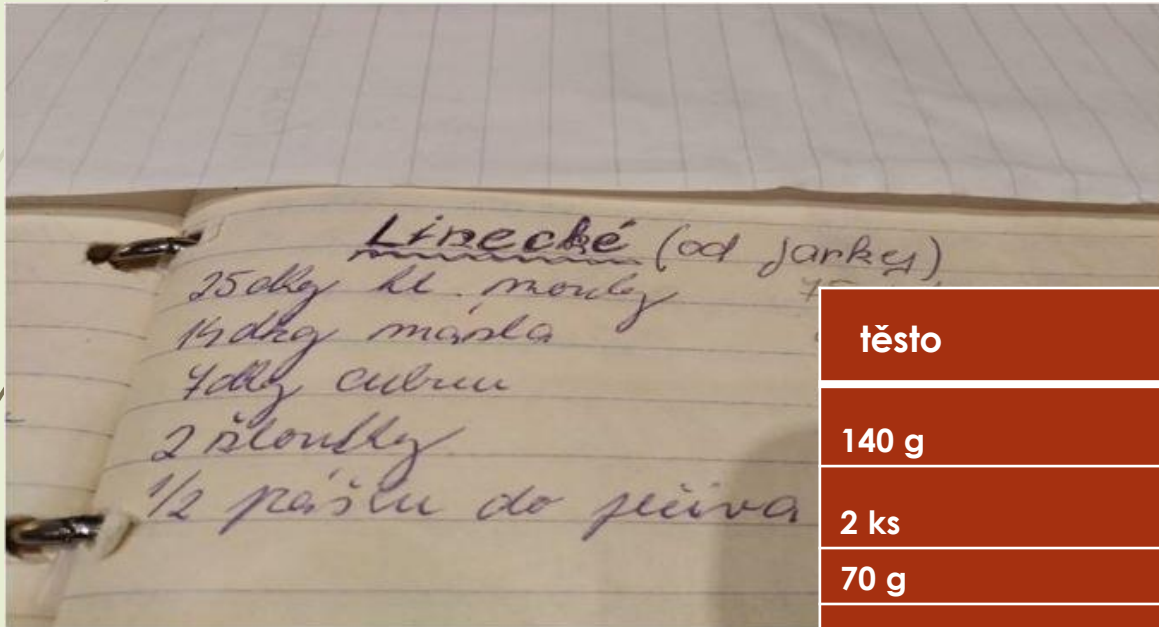 Linecké (od Jarky)
25dkg hl. mouky
14dkg másla
7dkg cukru
2 žloutky
1/2 prášku do pečiva
těsto
140 g
2 ks
70 g